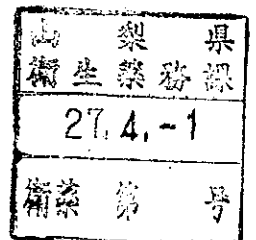 山梨県
衛生薬務課
27.4.-1
衛薬第 号